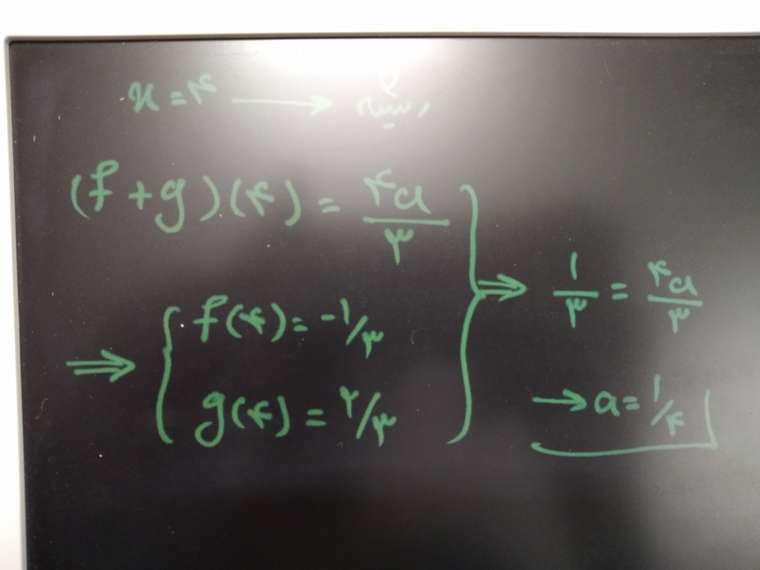 x = ۴ → ریشه
(f + g)(۴) = ۴a/۳
⇒ { f(۴) = -۱/۳
g(۴) = ۲/۳ }
⇒ ۱/۳ = ۴a/۳
→ a = ۱/۴